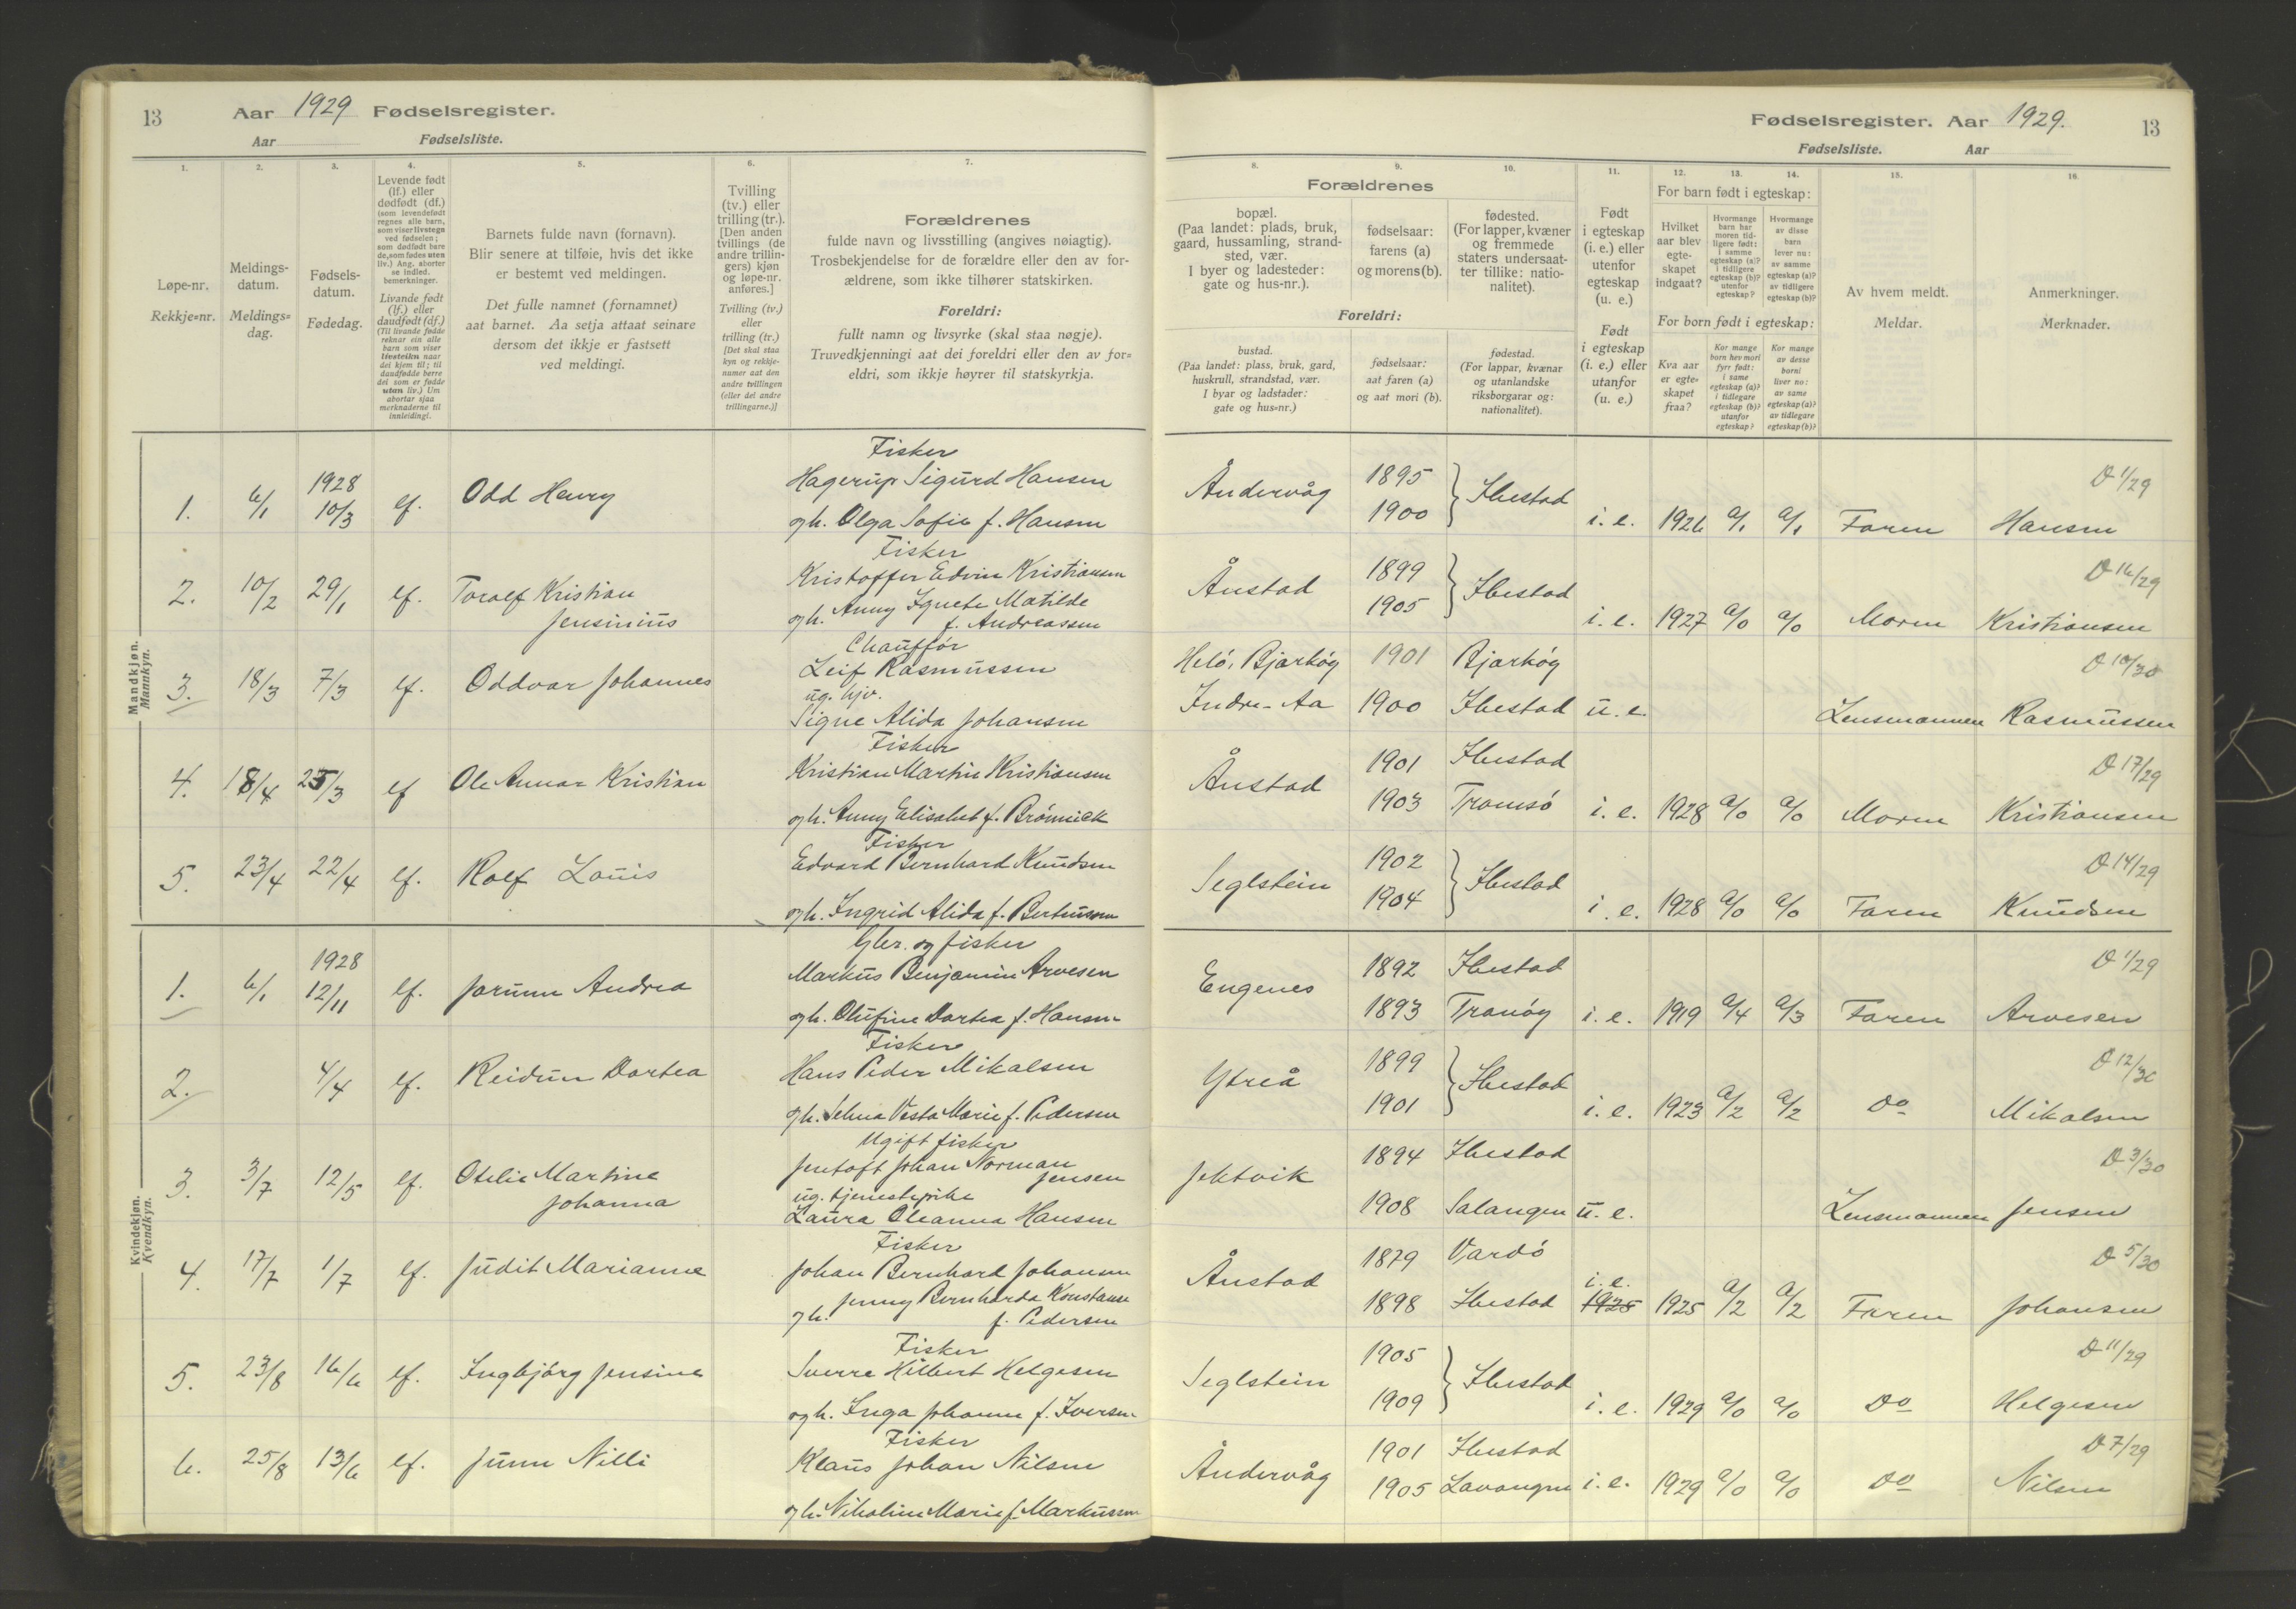 13 Aar 1929 Fødselsregister.
Aar Fødselsliste.
1.
2.
3.
4.
5.
6.
7.
Løpe-nr.
Rekkje=nr.
Meldings-
datum.
Meldings=
dag.
Fødsels-
datum.
Fødedag.
Levende født
(lf.) eller
dødfødt (df.)
(som levendefødt
regnes alle barn,
som viser livstegn
ved fødselen;
som dødfødt bare
de, som fødes uten
liv.) Ang. aborter
se indled.
bemerkninger.
Livande født
(lf.) eller
daudfødt (df.)
(Til livande fødde
reknar ein alle
barn som viser
livsteikn naar
dei kjem til; til
daudfødde berre
dei som er fødde
utan liv.) Um
abortar sjaa
merknaderne til
innleidingi.
Barnets fulde navn (fornavn).
Blir senere at tilføie, hvis det ikke
er bestemt ved meldingen.
Det fulle namnet (fornamnet)
aat barnet. Aa setja attaat seinare
dersom det ikkje er fastsett
ved meldingi.
Tvilling
(tv.) eller
trilling (tr.).
[Den anden
tvillings (de
andre trillin-
gers) kjøn
og løpe-nr.
anføres.]
Tvilling (tv.)
eller
trilling (tr.)
[Det skal staa
kyn og rekkje-
numer aat den
andre tvillingen
(eller dei andre
trillingarne.)]
Forældrenes
fulde navn og livsstilling (angives nøiagtig).
Trosbekjendelse for de forældre eller den av for-
ældrene, som ikke tilhører statskirken.
Foreldri:
fullt namn og livsyrke (skal staa nøgje).
Truvedkjenningi aat dei foreldri eller den av for=
eldri, som ikkje høyrer til statskyrkja.
Fødselsregister. Aar 1929. 13
Fødselsliste. Aar
8.
9.
10.
11.
12.
13.
14.
15.
16.
Forældrenes
bopæl.
(Paa landet: plads, bruk,
gaard, hussamling, strand-
sted, vær.
I byer og ladesteder:
gate og hus-nr.).
fødselsaar:
farens (a)
og morens (b).
fødested.
(For lapper, kvæner
og fremmede
staters undersaat-
ter tillike: natio-
nalitet).
Foreldri:
bustad.
(Paa landet: plass, bruk, gard,
huskrull, strandstad, vær.
I byar og ladstader:
gate og hus=nr.)
fødselsaar:
aat faren (a)
og aat mori (b).
fødestad.
(For lappar, kvænar
og utanlandske
riksborgarar og:
nationalitet).
Født
i egteskap
(i. e.) eller
utenfor
egteskap
(u. e.)
Født
i egteskap
(i. e.) eller
utanfor
egteskap
(u. e.)
For barn født i egteskap:
Hvilket
aar blev
egte-
skapet
indgaat?
Hvormange
barn har
moren tid-
ligere født:
i samme
egteskap (a)?
i tidligere
egteskap (b)?
utenfor
egteskap?
Hvormange
av disse
barn
lever nu:
av samme
egteskap (a)?
av tidligere
egteskap (b)?
For born født i egteskap:
Kva aar
er egte=
skapet
fraa?
Kor mange
born hev mori
fyrr født:
i same
egteskap (a)?
i tidlegare
egteskap (b)?
utanfor
egteskap?
Kor mange
av desse
borni
liver no:
av same
egteskap (a)?
av tidlegare
egteskap (b)?
Av hvem meldt.
Meldar.
Anmerkninger.
Merknader.
Mandkjøn.
Mannkyn.
Fisker
1. 6/1 1928 10/3 lf. Odd Henry Hagerup Sigurd Hansen
og h. Olga Sofie f. Hansen
Åndervåg 1895 1900 Ibestad i. e. 1926 a/1 a/1 Faren Hansen D 1/29
Fisker
2. 10/2 29/1 lf. Toralf Kristian Jensinius Kristoffer Edvin Kristiansen
og h. Anny Agnete Matilde
f. Andreassen
Ånstad 1899 1905 Ibestad i. e. 1927 a/0 a/0 Moren Kristiansen D 16/29
Chauffør
3. 18/3 7/3 lf. Oddvar Johannes Leif Rasmussen
ug. hjv.
Signe Alida Johansen
Helö, Bjarköy 1901 Bjarköy D 10/30
Indre-Aa 1900 Ibestad u. e. Lensmannen Rasmussen
Fisker
4. 18/4 25/3 lf Ole Annar Kristian Kristian Martin Kristiansen
og h. Anny Elisabet f. Brömnick
Ånstad 1901 Ibestad 1903 Tromsö i. e. 1928 a/0 a/0 Moren Kristiansen D 17/29
Fisker
5. 23/4 22/4 lf. Rolf Louis Edvard Bernhard Knudsen
og h. Ingrid Alida f. Berteussen
Seglstein 1902 1904 Ibestad i. e. 1928 a/0 a/0 Faren Knudsen D 14/29
Kvindekjøn.
Kvendkyn.
Gbr. og fisker
1. 6/1 1928 12/11 lf. Jorunn Andrea Markus Benjamin Arvesen
og h. Olufine Dortea f. Hansen
Engenes 1892 Ibestad 1893 Tranöy i. e. 1919 a/4 a/3 Faren Arvesen D 1/29
Fisker
2. 4/4 lf. Reidun Dortea Hans Peder Mikalsen
og h. Selma Vesta Marie f. Pedersen
Ytreå 1899 1901 Ibestad i. e. 1923 a/2 a/2 Do Mikalsen D 12/30
Ugift fisker
3. 3/7 12/5 lf. Otelie Martine Johanna Jentoft Johan Norman Jensen
ug. tjenestepike
Laura Oleanna Hansen
Jektvik 1894 Ibestad 1908 Salangen u. e. Lensmannen Jensen D 3/30
Fisker
4. 17/7 1/7 lf. Judit Marianne Johan Bernhard Johansen
og h. Jenny Bernharda Konstanse
f. Pedersen
Ånstad 1879 Vardö 1898 Ibestad i. e. 1925 1925 a/2 a/2 Faren Johansen D 5/30
Fisker
5. 23/8 16/6 lf. Ingbjörg Jensine Sverre Hilbert Helgesen
og h. Inga Johanne f. Iversen
Seglstein 1905 1909 Ibestad i. e. 1929 a/0 a/0 Do Helgesen D 11/29
Fisker
6. 25/8 13/6 lf. Junn Nilli Klaus Johan Nilsen
og h. Nikoline Marie f. Markussen
Åndervåg 1901 Ibestad 1905 Lavangen i. e. 1929 a/0 a/0 Do Nilsen D 7/29